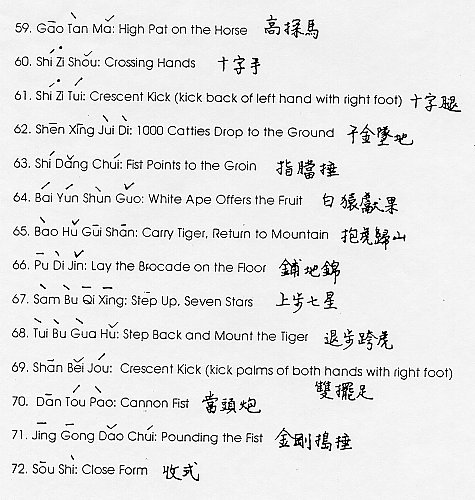 59. Gāo Tàn Mǎ: High Pat on the Horse 高探馬
60. Shí Zì Shǒu: Crossing Hands 十字手
61. Shí Zì Tuǐ: Crescent Kick (kick back of left hand with right foot) 十字腿
62. Shēn Xīng Jùi Dì: 1000 Catties Drop to the Ground 千金墜地
63. Shí Dāng Chuí: Fist Points to the Groin 指膛捶
64. Bái Yún Shùn Guǒ: White Ape Offers the Fruit 白猿獻果
65. Bào Hǔ Gūi Shān: Carry Tiger, Return to Mountain 抱虎歸山
66. Pū Dì Jǐn: Lay the Brocade on the Floor 鋪地錦
67. Sàm Bù Qī Xīng: Step Up, Seven Stars 上步七星
68. Tùi Bù Gùa Hǔ: Step Back and Mount the Tiger 退步跨虎
69. Shān Běi Jóu: Crescent Kick (kick palms of both hands with right foot)
雙擺足
70. Dān Tóu Pào: Cannon Fist 當頭炮
71. Jīng Gōng Dǎo Chuí: Pounding the Fist 金剛搗捶
72. Sōu Shì: Close Form 收式